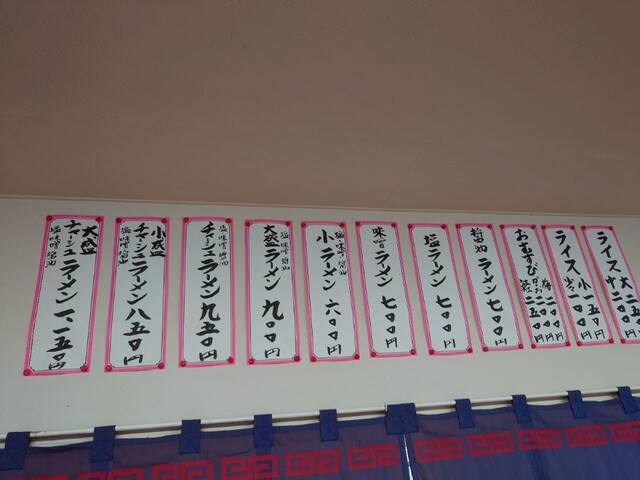 ライス 大 二五〇
中 二〇〇
ライス 小 一五〇円
おむすび 梅 二〇〇円
二五〇円
醤油 ラーメン 七〇〇円
塩 ラーメン 七〇〇円
味噌 ラーメン 七〇〇円
塩・味噌・醤油
小ラーメン 六〇〇円
塩・味噌・醤油
大盛ラーメン 九〇〇円
塩・味噌・醤油
チャーシューラーメン 九五〇円
小盛
チャーシューラーメン 八五〇円
塩・味噌・醤油
大盛
チャーシューラーメン 一、一五〇円
塩・味噌・醤油